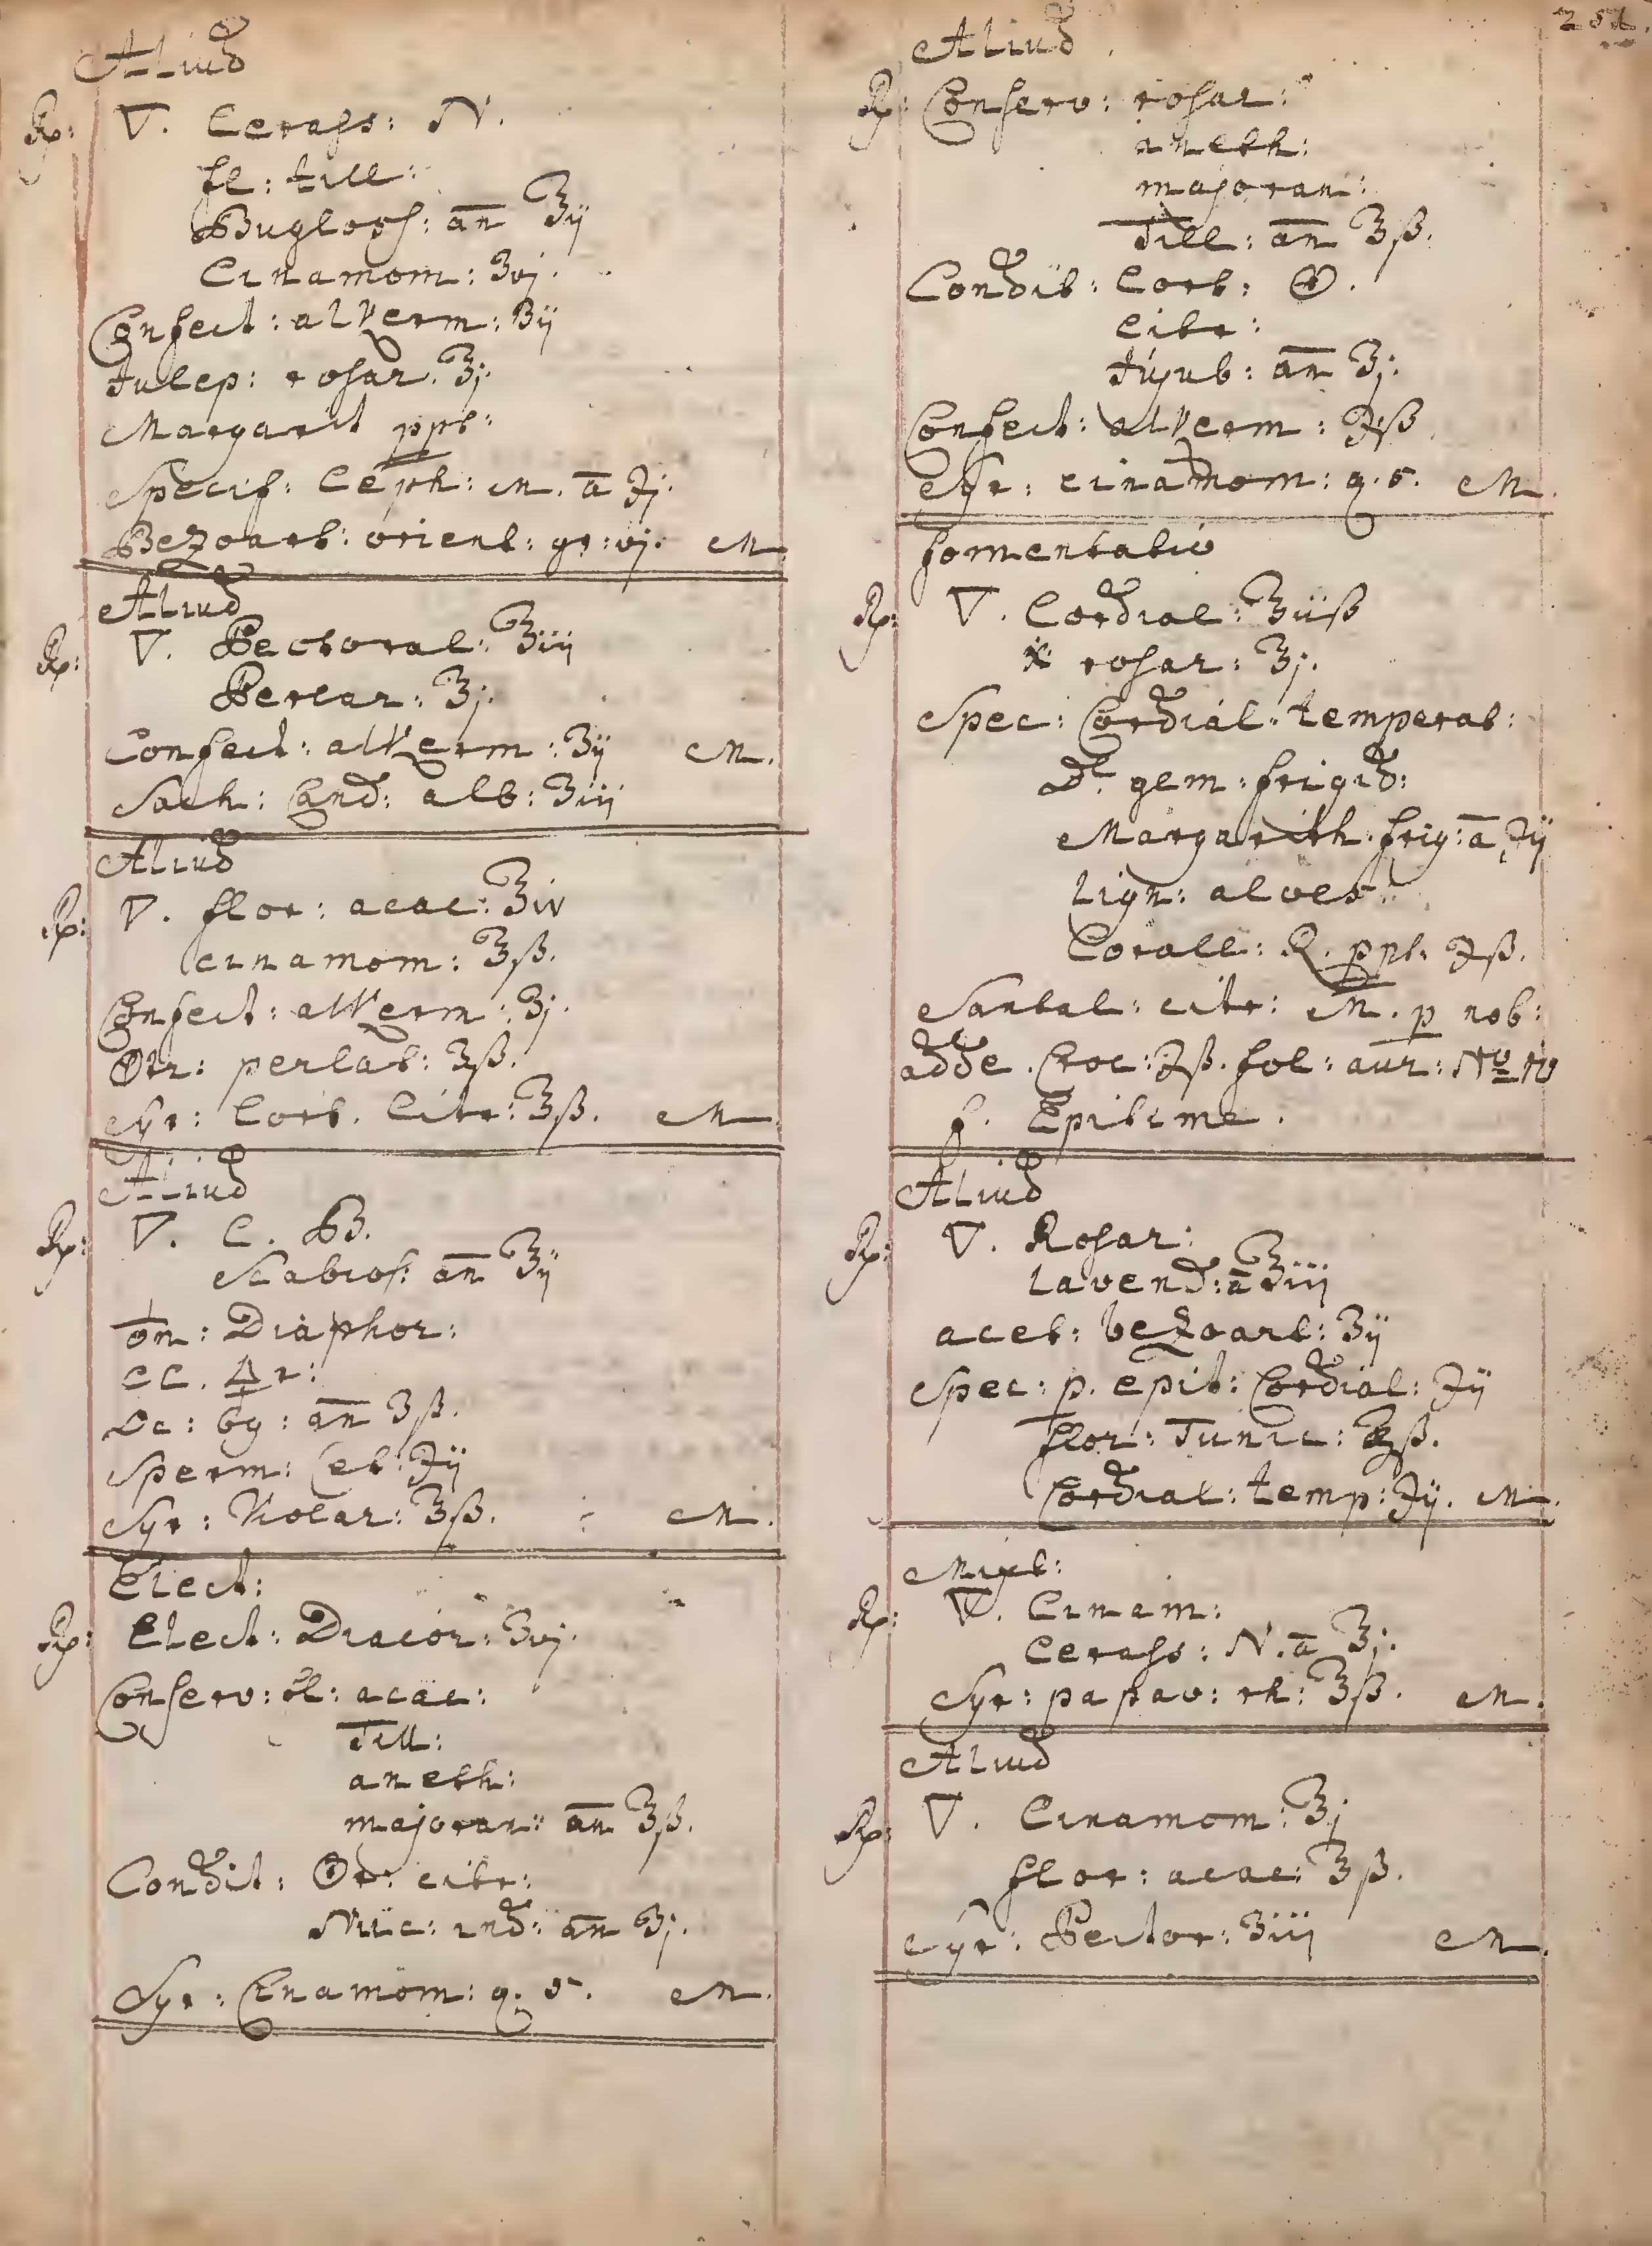 Aliud
Rp: ▽. Cerass: N.
fl: till:
Bugloss: an ℥ij
Cinamom: ʒvj.
Confect: alKerm: ʒij
Julep: rosar. ℥j.
Margarit ppt:
Specif: Ceph: M. a ℈j.
Bezoart: orient: gr: vj. M.
Aliud
Rp: ▽. Pectoral: ℥iij
Perlar: ℥j.
Confect: alKerm: ʒij M.
Sach: Cand: alb: ʒiij
Aliud
Rp: ▽. flor: acac: ℥iv
Cinamom: ℥ß.
Confect: alKerm: ʒj.
Otr: perlat: ʒß.
Syr: Cort. Citr: ℥ß. M
Aliud
Rp: ▽. C. B.
Scabios: an ℥ij
on: Diaphor:
CC. r:
Oc: 69: an ʒß.
Sperm: Cet: ℈ij
Syr: Violar: ℥ß. M.
Elect:
Rp: Elect: Diacor: ʒvj.
Conserv: fl: acac:
Till:
aneth:
majoran: an ℥ß.
Condit: Or: citr:
Nuc: ind: an ʒj.
Syr: Cinamom: q. s. M.
251.
Aliud.
Rp: Conserv: rosar:
aneth:
majoran:
Till: an ℥ß.
Condit: Cort:
Citr:
Jujub: an ℥j.
Confect: alKerm: ℈ß
Syr: cinamom: q. s. M.
fomentatio
Rp: ▽. Cordial: ℥iiß
rosar: ℥j.
Spec: Cordial: temperat:
De gem: frigid:
Margarith. frig: a ℈ij
Lign: aloes:
Corall: R. ppt. ℈ß.
Santal: citr: M. p nob:
adde. Croc: ℈ß. fol: aur: No iv
f. Epitime.
Aliud
Rp: ▽. Rosar:
Lavend: a ℥iij
acet: bezoart: ʒij
Spec: p. epit: Cordial: ℈ij
flor: Tunic: ß.
Cordial: temp: ℈ij. M.
Mixt:
Rp: ▽. Cinam:
Cerass: N. a ℥j.
Syr: papav: rh: ℥ß. M.
Aliud
Rp: ▽. Cinamom: ℥j
flor: acac: ℥ß.
Syr: Pector: ʒiij M.